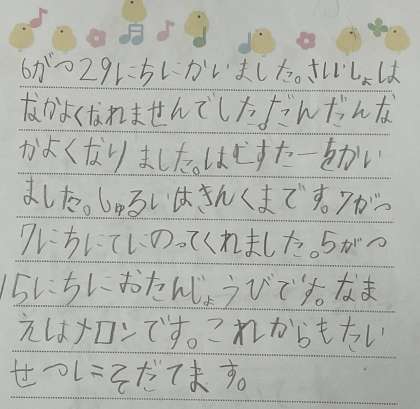 6がつ29にちにかいました。さいしょは
なかよくなれませんでした。だんだんな
かよくなりました。はむすたーをかい
ました。しゅるいはきんくまです。7がつ
7にちにてにのってくれました。5がつ
15にちにおたんじょうびです。なま
えはメロンです。これからもたい
せつにそだてます。